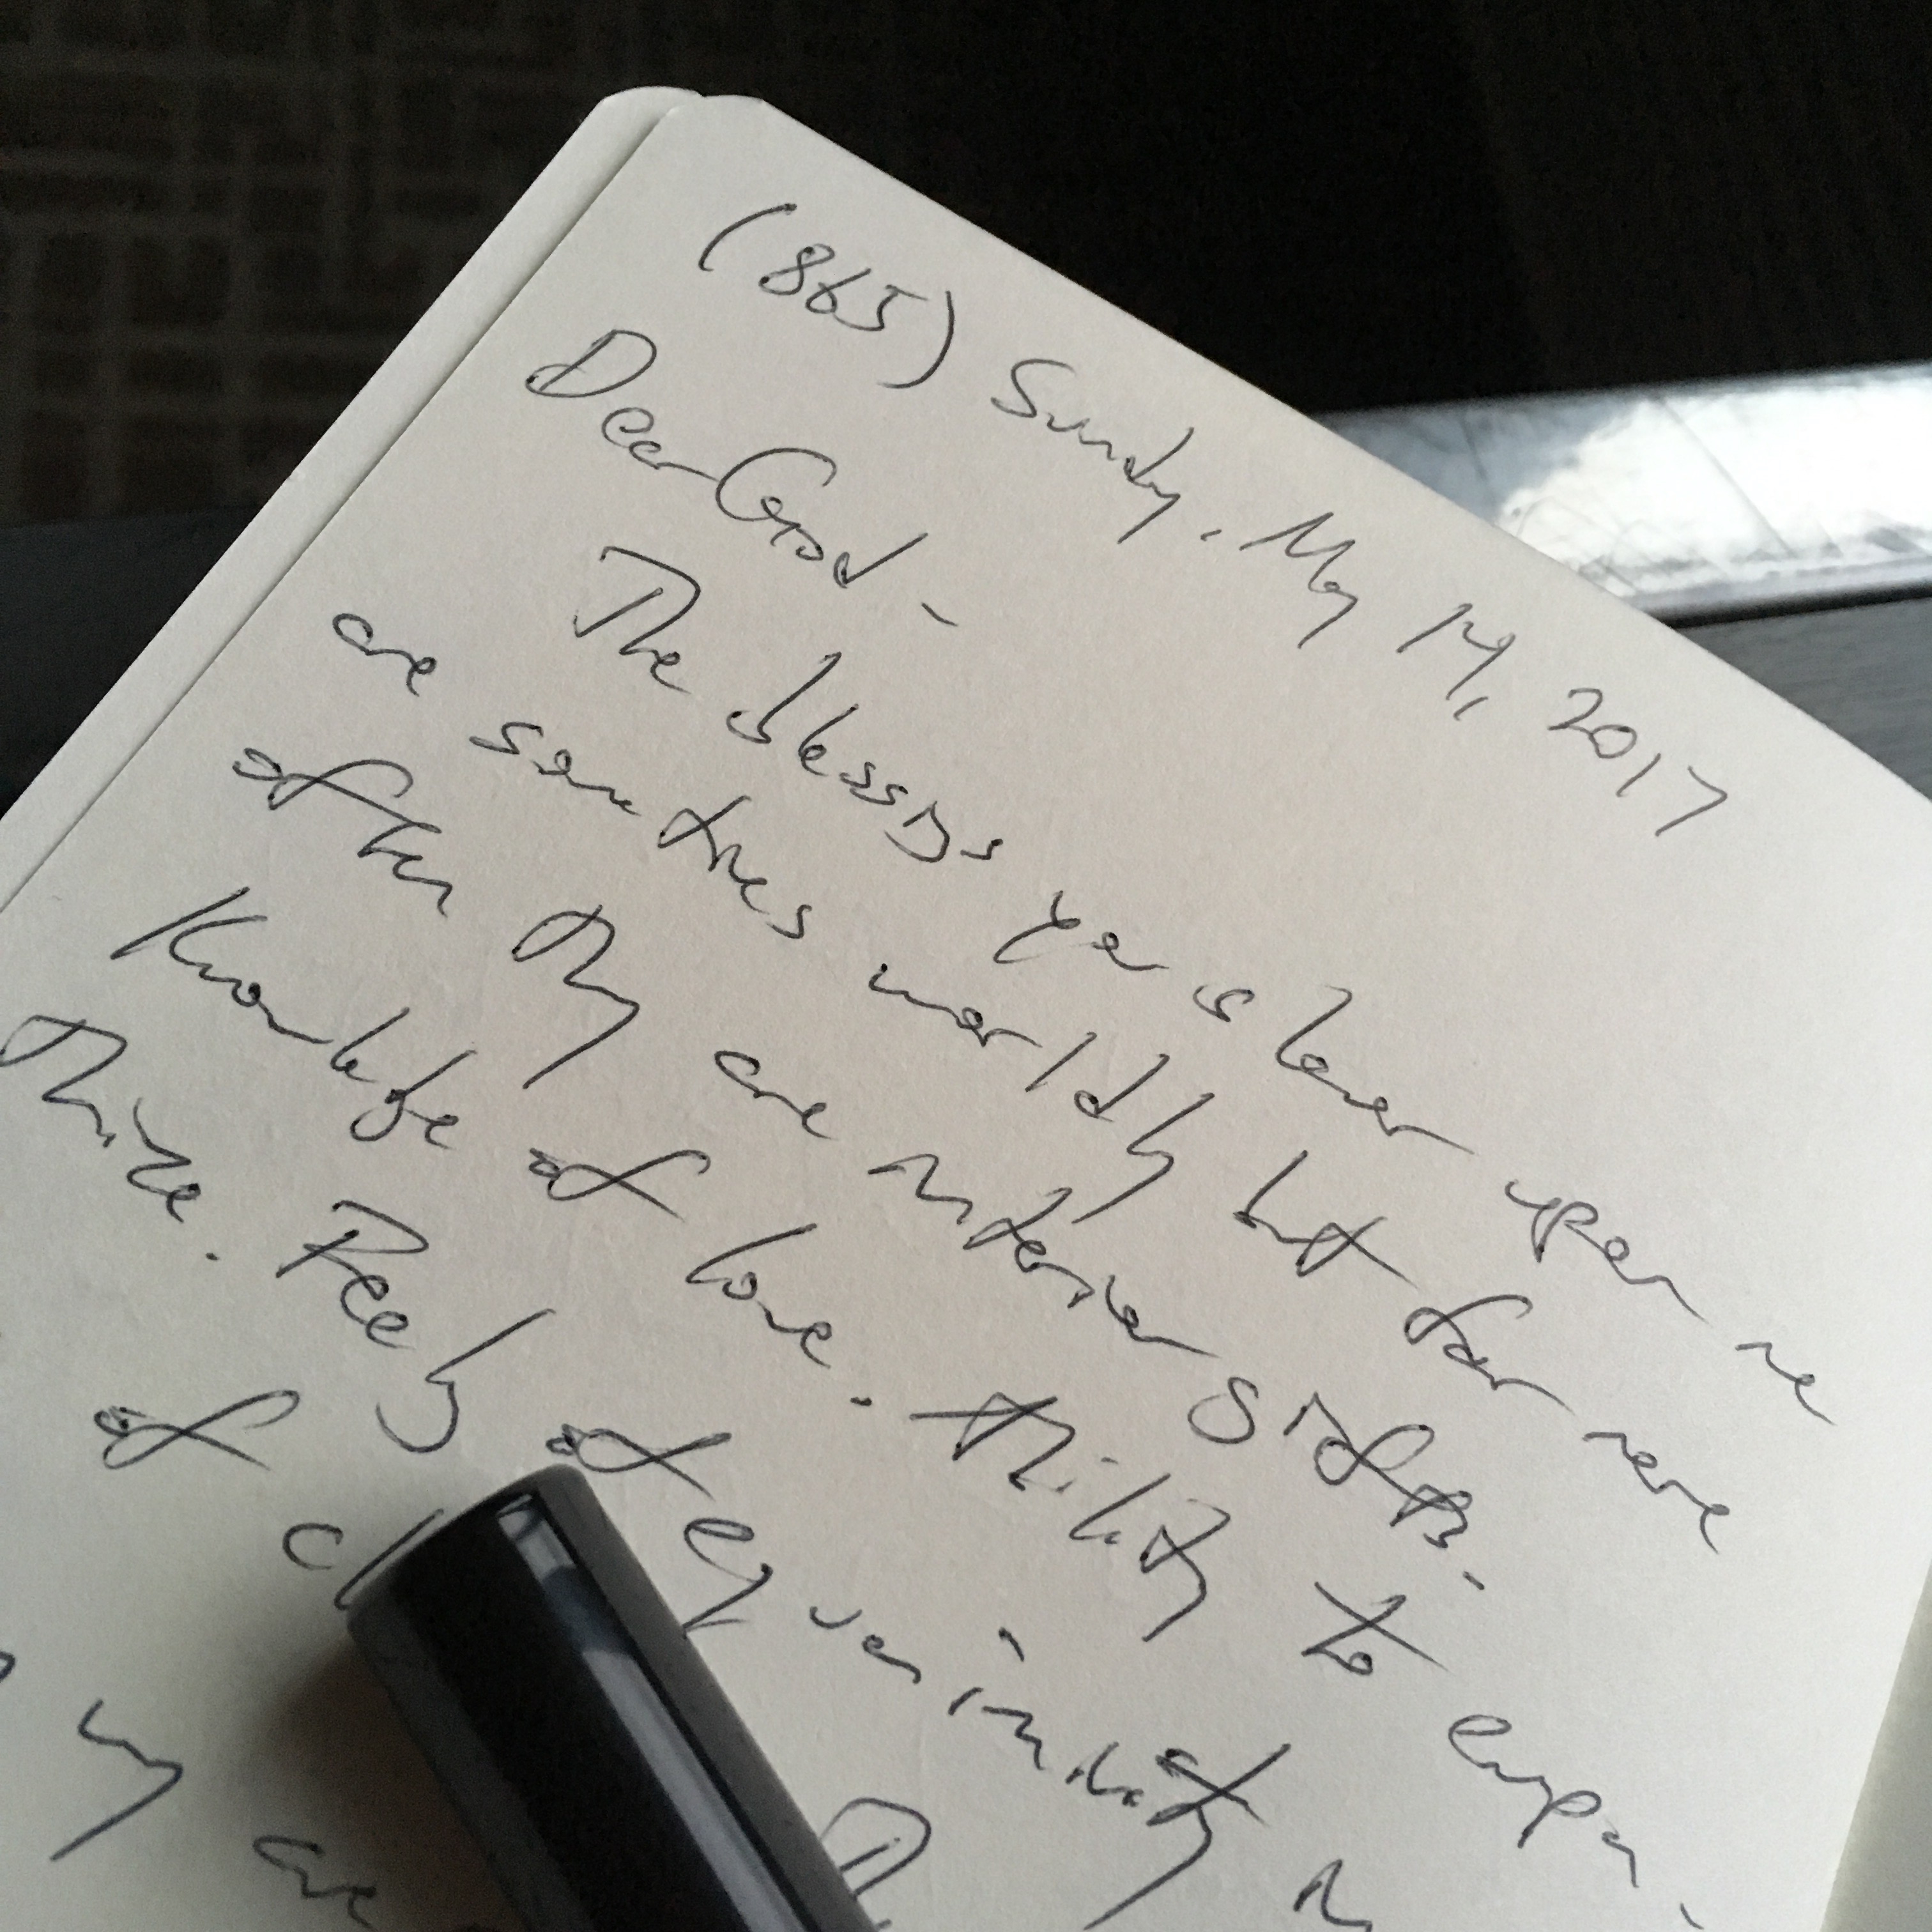 (865) Sunday, May 14, 2017
Dear God -
The blessings you shower upon me
are sometimes worldly but far more
often they are interior gifts.
Knowledge of love. Ability to
thine. Feeling of equanimity
of
are